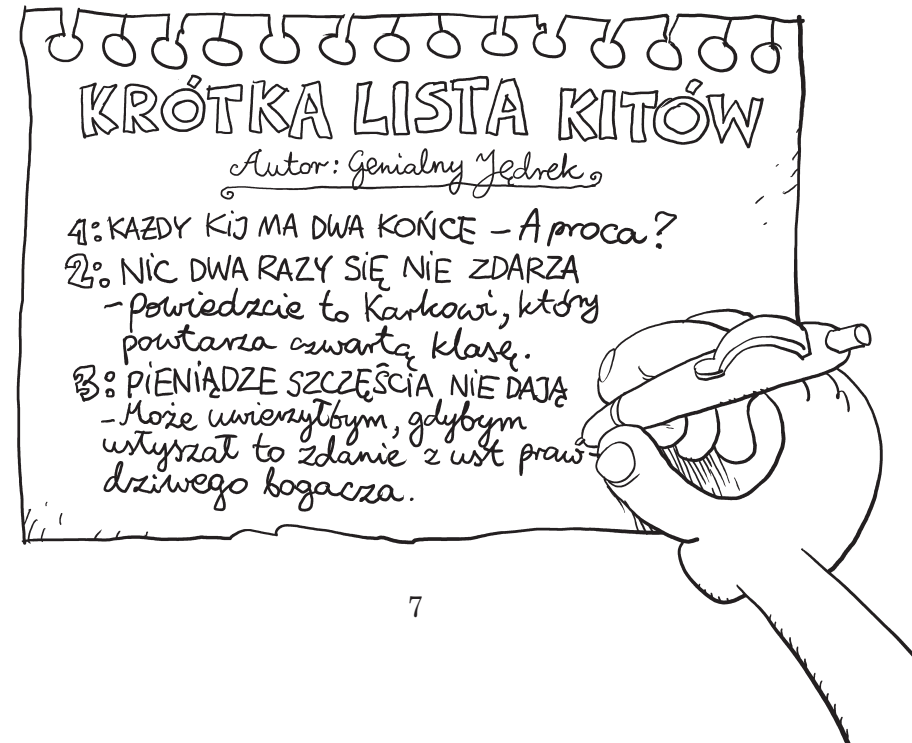 KRÓTKA LISTA KITÓW
Autor: Genialny Jędrek
1: KAŻDY KIJ MA DWA KOŃCE – A proca?
2: NIC DWA RAZY SIĘ NIE ZDARZA
– Powiedzcie to Karkowi, który
powtarza czwartą klasę.
3: PIENIĄDZE SZCZĘŚCIA NIE DAJĄ
– Może uwierzyłbym, gdybym
usłyszał to zdanie z ust praw-
dziwego bogacza.
7